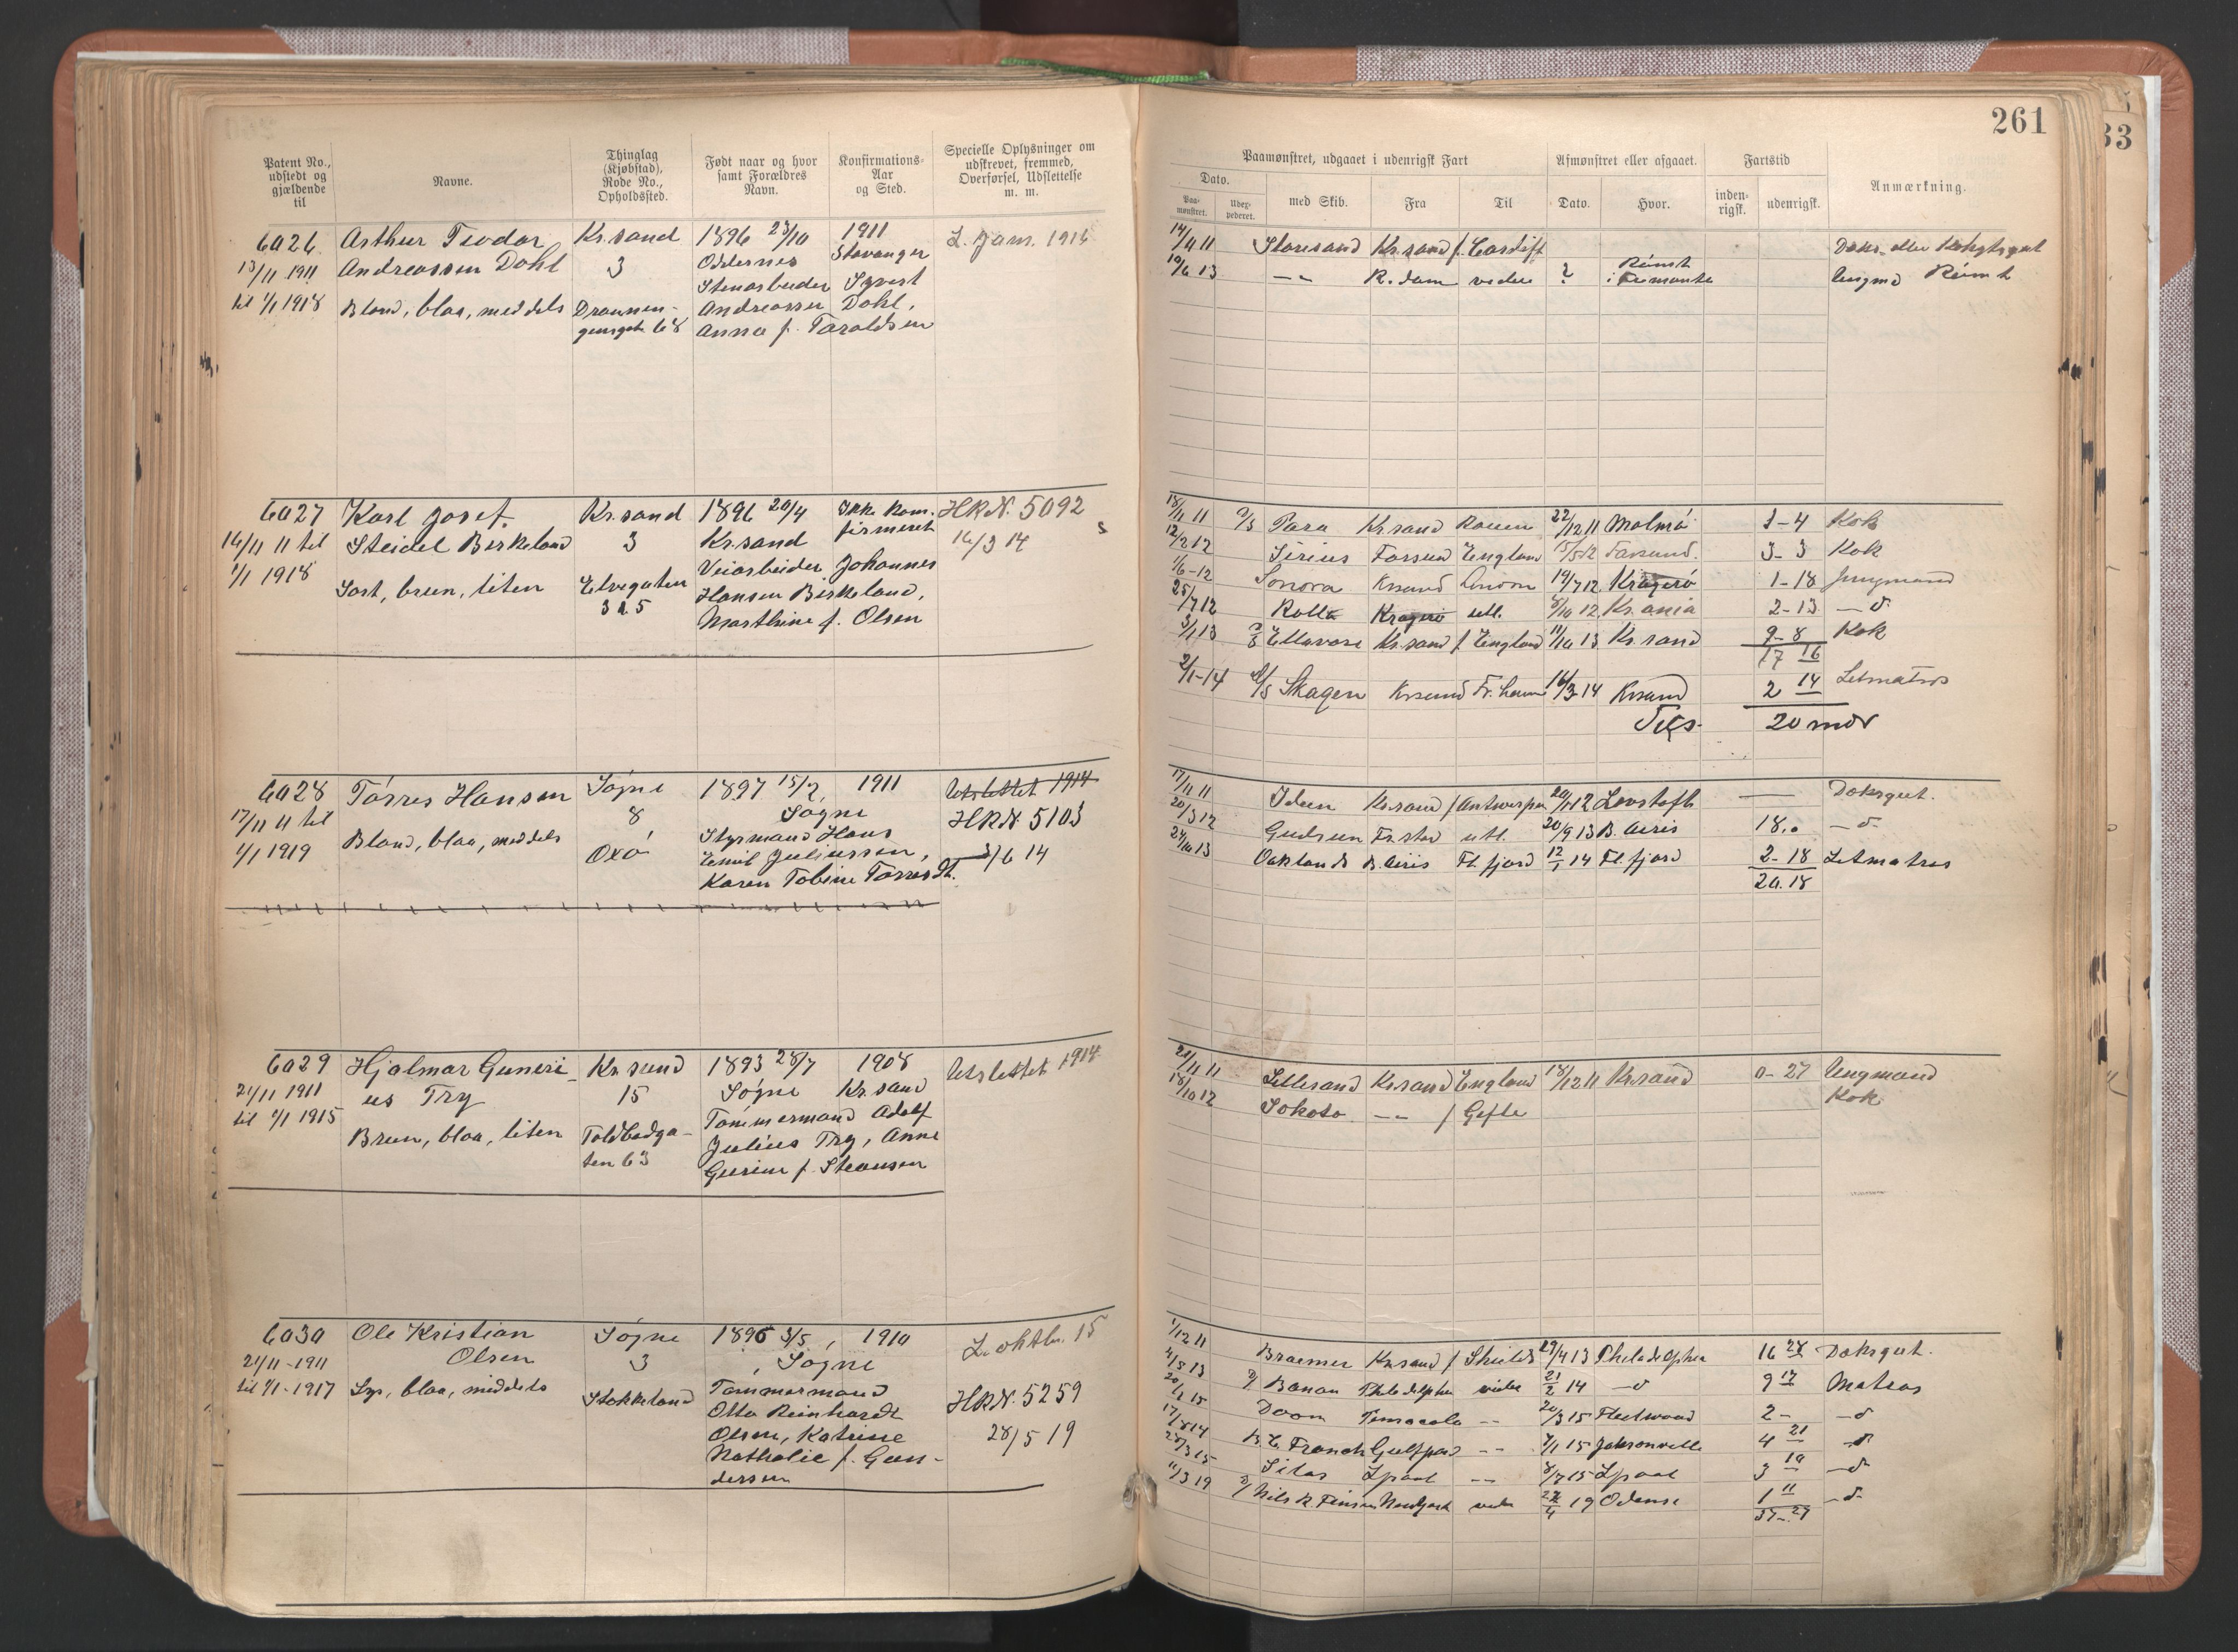 261
33
Patent No., udstedt og gjældende til
Navne.
Thinglag (Kjøbstad), Rode No., Opholdssted.
Født naar og hvor samt Forældres Navn.
Konfirmations-Aar og Sted.
Specielle Oplysninger om udskrevet, fremmed, Overførsel, Udslettelse m. m.
Paamønstret, udgaaet i udenrigsk Fart
Afmønstret eller afgaaet.
Fartstid
Anmærkning.
Dato.
Paa-mønstret.
Udex-pederet.
med Skib.
Fra
Til
Dato.
Hvor.
inden-rigsk.
udenrigsk.
6026 Arthur Teodor Kr.sand 1896 23/10 1911 L. Jam. 1916
13/11 1911 Andreassen Dahl 3 Oddernes Stavanger
Stenarbeider Sqvert
til 1/1 1918 Blond, blaa, meddels Dronnen- Andreassen Dahl,
gensgt. 68 Anna f. Taraldsen
14/11 11 Staresand Kr.sand f. Cardiff Dæks- eller
19/6 13 -"- R.dam videre ? Rømt Rømt
6027 Karl Josef. Kr.sand 1896 20/4 Ikke kon- HRN. 5092
firmeret
16/11 11 til Steidel Birkeland 3 Kr.sand 16/3 14
1/1 1918 Veiarbeider Johannes
Sort, brun, liten Elvegaten Hansen Birkeland,
Marthine f. Olsen
18/11 11 Para Kr.sand Rouen 22/12 11 Malmö 1-4 Kok
12/2 12 Sirius Farsund England 15/5 12 Farsund. 3-3 Kok
1/6-12 Sonora Krsand 19/7 12 Kragerö 1-18 Jungmand
25/7 12 Rolla Kragerö utl. 8/10 12 Kr.ania 2-13 -d-
3/1 13 Ellavore Kr.sand f. England 11/10 13 Kr.sand 9-8 Kok
17 16
2/1-14 Skagen Krsand Fr.havn 16/3 14 Krsand 2 14 Letmatros
Tils. 20 mdr
6028 Tørres Hansen Søgne 1897 15/2, 1911 Utslettet 1914
17/11 11 til 8 Søgne HRN. 5103
Blond, blaa, meddels Styrmand Hans
1/1 1919 Oxö Emil Juliussen, 3/6 14
Karen Tobine Tørresdt.
17/11 11 Iden Kr.sand / Antwerpen 20/1 12 Lovstoft — Dæksgut.
20/3 12 Gudrun Fr.stad utl. 20/9 13 B. Aires 18,0 -d-
27/10 13 Oaklands B. Airis Fl.fjord 12/1 14 Fl.fjord 2-18 Letmatros
20.18
6029 Hjalmar Guneri- Kr.sand 1893 28/7 1908 Utslettet 1914
21/11 1911 us Try 15 Søgne Kr.sand
til 1/1 1915 Tømmermand Adolf
Brun, blaa, liten Toldbodga- Julius Try, Anne
ten 63 Gurine f. Steansen
21/11 11 Lillesand Kr.sand England 18/12 11 Kr.sand 0-27 Ungmand
18/10 12 Sokoto -"- / Gefle Kok
6030 Ole Kristian Søgne 1895 3/5, 1910 L. oktbr. 15
21/11-1911 Olsen 3 Søgne
til 1/1-1917 Lys, blaa, middels Stokkeland Tømmermand HRN. 5259
Otto Reinhardt
Olsen, Katrine 28/5 19
Nathalie f. Gun-
dersen
1/12 11 Braemer Kr.sand / Shields 29/4 13 Philadelphia 16 28 Dæksgut.
4/5 13 Banan Philadelphia vider 21/2 14 -d- 9 17 Matros
Doon Pensacola -"- 20/3 15 Fleetwood 2- -d-
17/8 14 French Gulfport -"- 7/1 15 Jaksonville 4 21 -d-
25/3 15 Silas Lpool -"- 8/7 15 Lpool 3 10 -d-
11/3 19 Nils R. Finsen Newyork vider 22/4 19 Odense 1 11 -d-
37-27